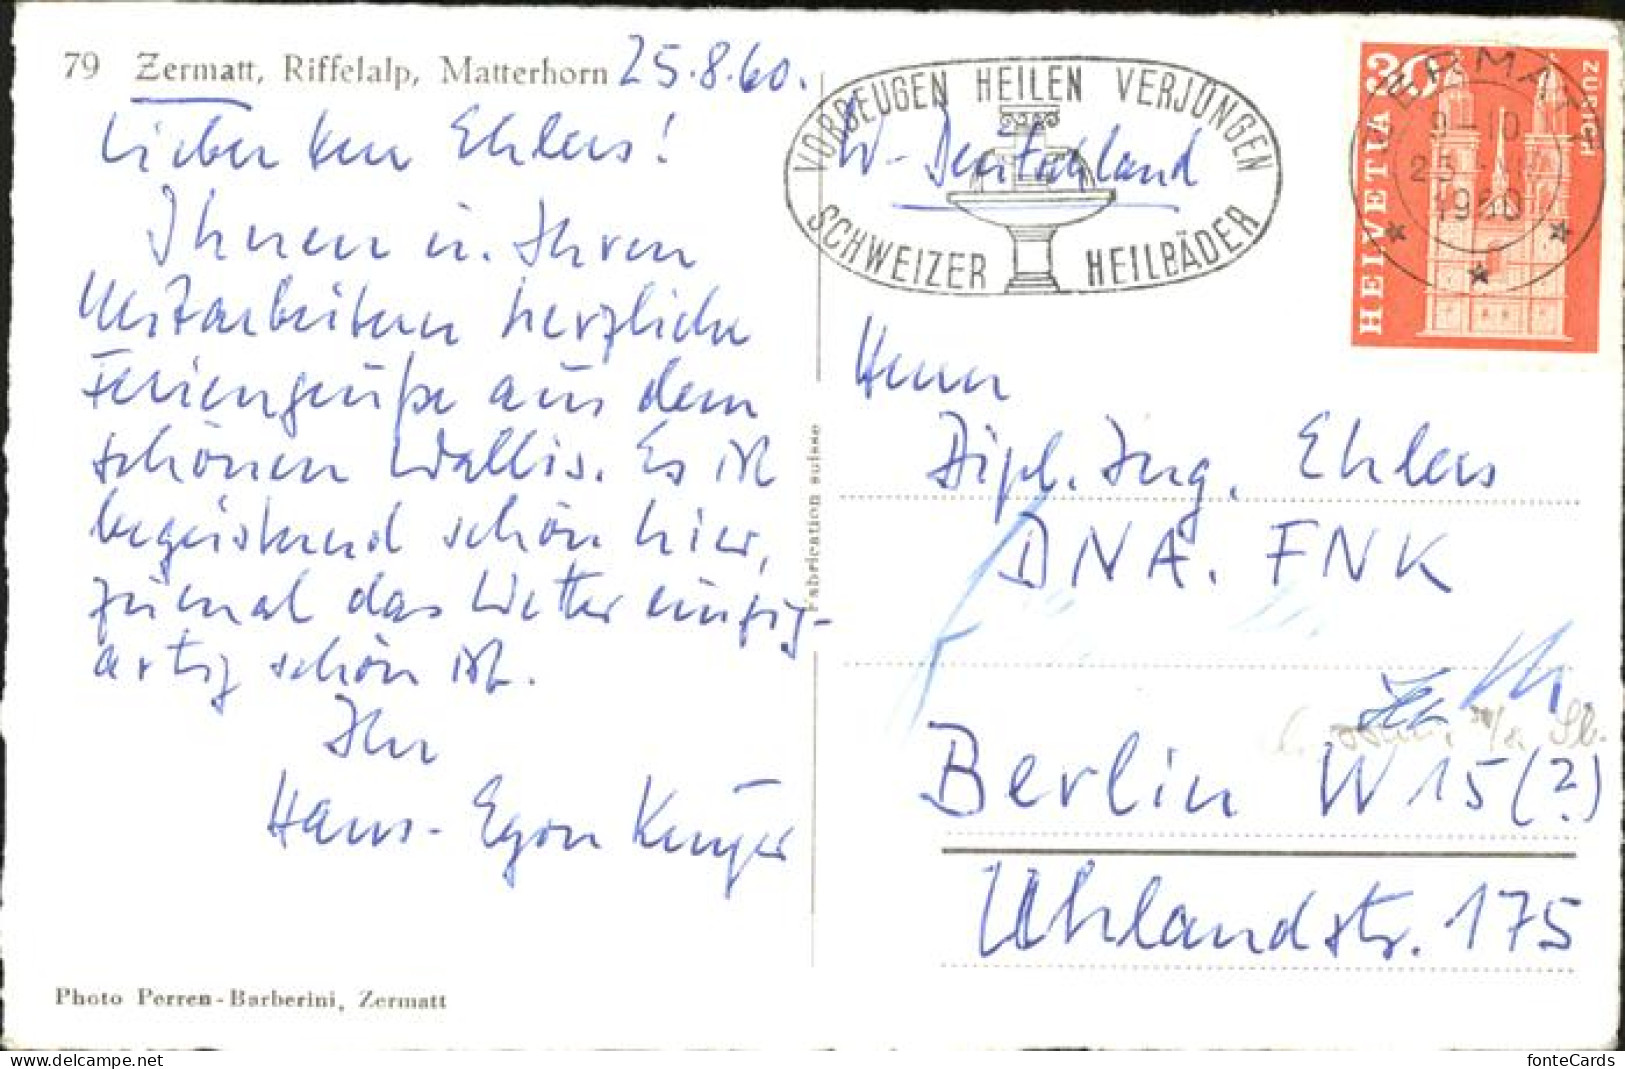 79 Zermatt, Riffelalp, Matterhorn 25.8.60.
Lieber Herr Ehlers!
Ihnen u. Ihren
Mitarbeitern herzliche
Feriengrüße aus dem
schönen Wallis. Es ist
begeisternd schön hier,
zumal das Wetter einzig-
artig schön ist.
Ihr
Hans-Egon
Photo Perren-Barberini, Zermatt
Fabrication suisse
VORBEUGEN HEILEN VERJÜNGEN
SCHWEIZER HEILBÄDER
W-Deutschland
30
HELVETIA
ZÜRICH
ZERMATT
9-10
1960
Herrn
Dipl. Ing. Ehlers
DNA. FNK
Berlin W 15 (?)
Uhlandstr. 175
delcampe.net
fonteCards